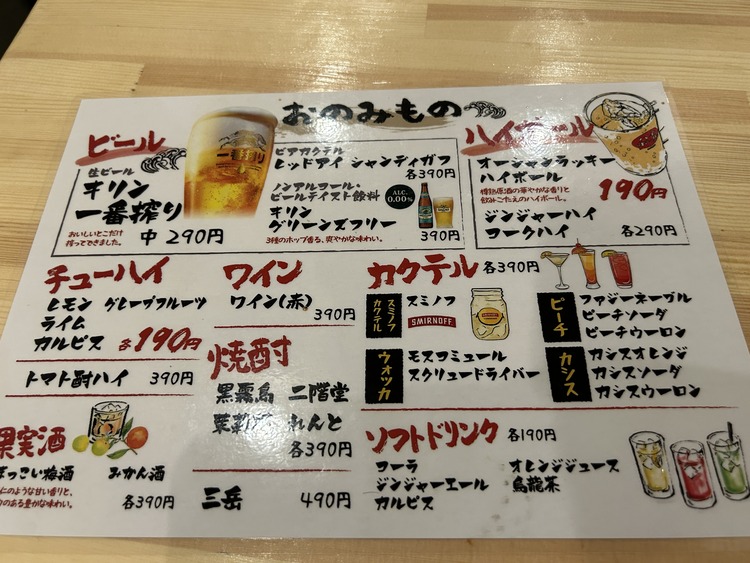 おのみもの
ビール
生ビール
キリン
一番搾り
おいしいとこだけ
搾ってできました。
中 290円
一番搾り
ビアカクテル
レッドアイ シャンディガフ
各390円
ノンアルコール・
ビールテイスト飲料
ALC.
0.00%
キリン
グリーンズフリー
3種のホップ香る、爽やかな味わい。
390円
ハイボール
オーシャンラッキー
ハイボール
樽熟原酒の華やかな香りと
飲みごたえのハイボール。
190円
ジンジャーハイ
コークハイ
各290円
チューハイ
レモン グレープフルーツ
ライム
カルピス 各190円
トマト酎ハイ 390円
果実酒
ぽっこい梅酒 みかん酒
のような甘い香りと、
のある豊かな味わい。
各390円
ワイン
ワイン(赤)
390円
焼酎
黒霧島 二階堂
れんと
各390円
三岳 490円
カクテル 各390円
スミノフ
カクテル
スミノフ
SMIRNOFF
ウォッカ
モスコミュール
スクリュードライバー
ピーチ
ファジーネーブル
ピーチソーダ
ピーチウーロン
カシス
カシスオレンジ
カシスソーダ
カシスウーロン
ソフトドリンク 各190円
コーラ オレンジジュース
ジンジャーエール 烏龍茶
カルピス